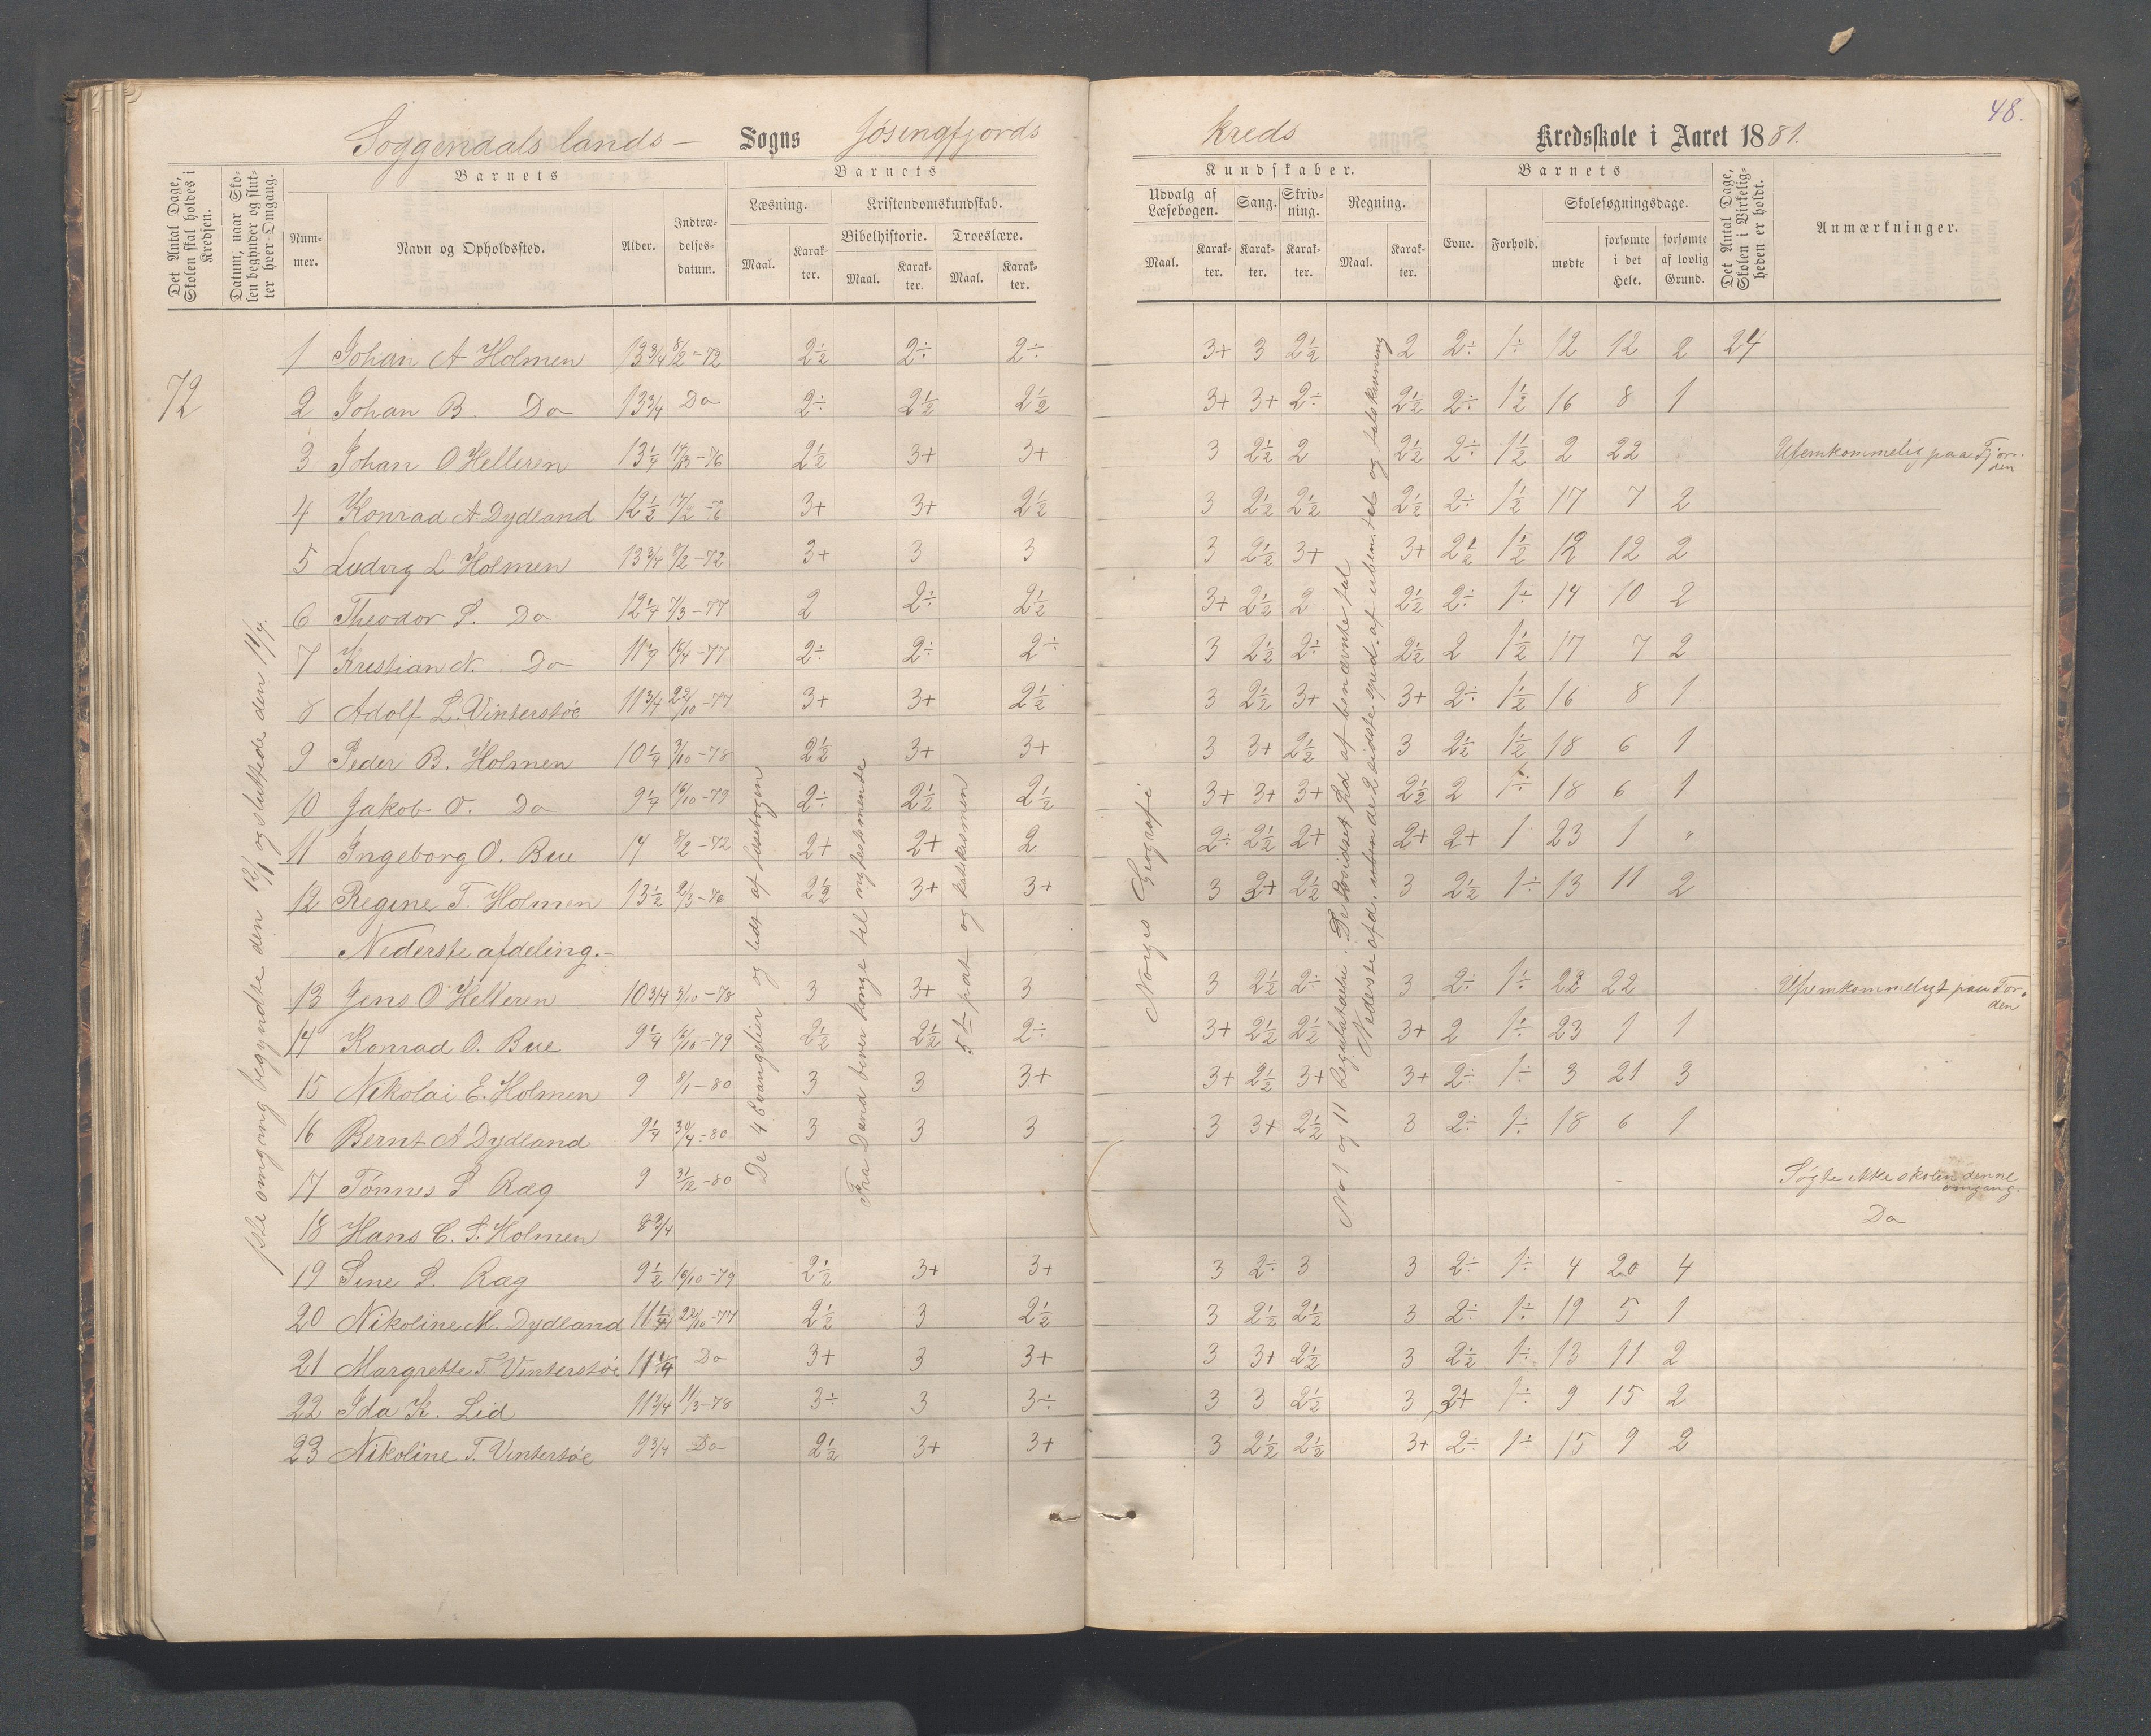 48.
Soggendals lands — Sogns Jøsingfjords kreds Kredsskole i Aaret 1881.
Det Antal Dage, Skolen skal holdes i Kredsen.
Datum, naar Skolen begynder og slutter hver Omgang.
Barnets
Nummer.
Navn og Opholdssted.
Alder.
Indtrædelsesdatum.
Barnets
Læsning.
Maal.
Karakter.
Kristendomskundskab.
Bibelhistorie.
Maal.
Karakter.
Troeslære.
Maal.
Karakter.
Kundskaber.
Udvalg af Læsebogen.
Maal.
Karakter.
Sang.
Karakter.
Skrivning.
Karakter.
Regning.
Maal.
Karakter.
Barnets
Evne.
Forhold.
Skolesøgningsdage.
mødte
forsømte i det Hele.
forsømte af lovlig Grund.
Det Antal Dage, Skolen i Virkeligheden er holdt.
Anmærkninger.
72
1ste omgang begyndte den 12/1 og sluttede den 11/4.
De 4 Evangelier og lidt af læsebogen
Fra David bliver konge til nytestamente
5te part og katekismen
Norges Geografi
No 1 og 11 Regulatudri. De Lovidset lid af benævnte tal
Nederste afd. uben de 2 sidste sped. af uben. tal og talskrivning
1 Johan A Holmen 13 3/4 8/2-72 2½ 2÷ 2÷ 3+ 3 2½ 2 2÷ 1÷ 12 12 2 24
2 Johan B. Do 13 3/4 Do 2÷ 2½ 2½ 3+ 3+ 2÷ 2½ 2÷ 1½ 16 8 1
3 Johan O Helleren 13¼ 17/3-76 2½ 3+ 3+ 3 2½ 2 2½ 2÷ 1½ 2 22 Ufemkommelig paa Fjorden
4 Konrad A. Dydland 12½ 17/2-76 3+ 3+ 2½ 3 2½ 2½ 2½ 2÷ 1½ 17 7 2
5 Ludvig L Holmen 13 3/4 8/2-72 3+ 3 3 3 2½ 3+ 3+ 2½ 1½ 12 12 2
6 Theodor S. Do 12¼ 7/3-77 2 2÷ 2½ 3+ 2½ 2 2½ 2÷ 1÷ 14 10 2
7 Kristian N. Do 11¼ 16/4-77 2÷ 2÷ 2÷ 3 2½ 2÷ 2½ 2 1½ 17 7 2
8 Adolf L. Vinterstøe 11 3/4 22/10-77 3+ 3+ 2½ 3 2½ 3+ 3+ 2÷ 1½ 16 8 1
9 Peder B. Holmen 10¼ 3/10-78 2½ 3+ 3+ 3 3+ 2½ 3 2½ 1½ 18 6 1
10 Jakob O. Do 9¼ 16/10-79 2÷ 2½ 2½ 3+ 3+ 3+ 2½ 2 1÷ 18 6 1
11 Ingeborg O. Bue 14 8/2-72 2+ 2+ 2 2÷ 2½ 2+ 2+ 2+ 1 23 1 "
12 Regine T. Holmen 13½ 2/3-76 2½ 3+ 3+ 3 2+ 2½ 3 2½ 1÷ 13 11 2
Nederste afdeling.
13 Jens O Helleren 10 3/4 3/10-78 3 3+ 3 3 2½ 2÷ 3 2÷ 1÷ 22 22 Ufremkommeligt paa Fjorden
14 Konrad O. Bue 9¼ 16/10-79 2½ 2½ 2÷ 3+ 2½ 2½ 3+ 2 1÷ 23 1 1
15 Nikolai E. Holmen 9 8/1-80 3 3 3+ 3+ 2½ 3+ 3+ 2÷ 1÷ 3 21 3
16 Bernt A Dydland 9¼ 30/4-80 3 3 3 3 3+ 2½ 3 2÷ 1÷ 18 6 1
17 Tønnes S Ræg 9 31/12-80 Søgte ikke skolen denne omgang.
18 Hans C. S. Holmen 8 3/4 Do
19 Sine S. Ræg 9½ 16/10-79 2½ 3+ 3+ 3 2÷ 3 3 2÷ 1÷ 4 20 4
20 Nikoline M. Dydland 11¼ 22/10-77 2½ 3 2½ 3 2½ 2½ 3 2÷ 1÷ 19 5 1
21 Margrette T. Vinterstøe 11¼ Do 3+ 3 3+ 3 3+ 2½ 3 2½ 1÷ 13 11 2
22 Ida K. Lid 11 3/4 11/3-78 3÷ 3 3÷ 3 3 2½ 3 2+ 1÷ 9 15 2
23 Nikoline T. Vintersøe 9 3/4 Do 2½ 3+ 3+ 3 2½ 2½ 3+ 2÷ 1÷ 15 9 2